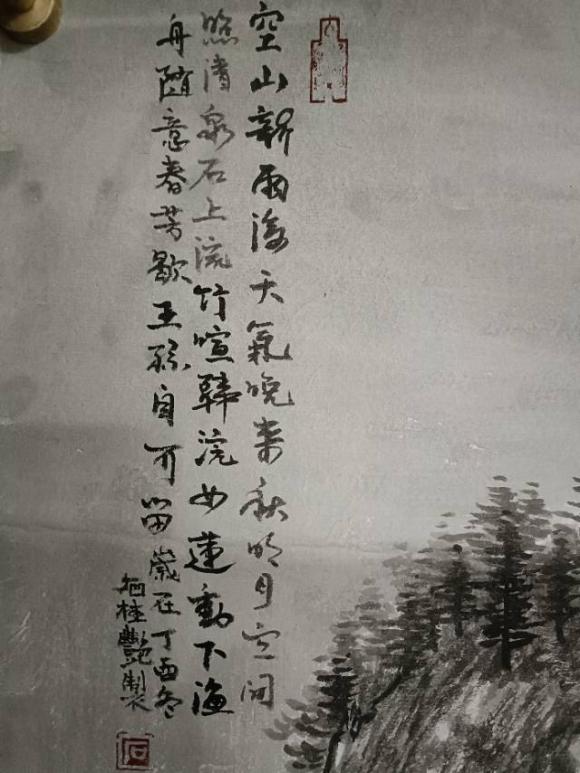 空山新雨後天氣晚来秋明月空間
照清泉石上流竹喧歸浣女蓮動下漁
舟隨意春芳歇王孫自可留歲在丁酉冬
桂艷製
石